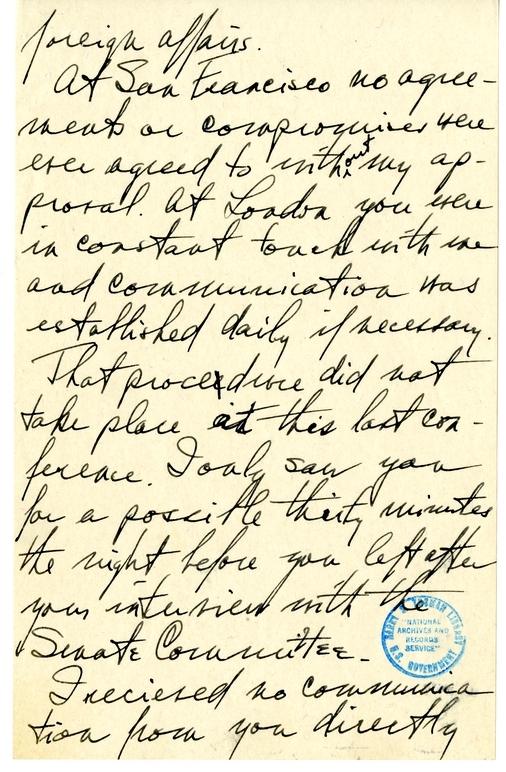 foreign affairs.
At San Francisco no agree-
ments or compromises were
ever agreed to without my ap-
proval. At London you were
in constant touch with me
and communication was
established daily if necessary.
That procedure did not
take place at this last con-
ference. I only saw you
for a possible thirty minutes
the night before you left after
your interview with the
Senate Committee.
I recieved no communica
tion from you directly
HARRY S. TRUMAN LIBRARY
"NATIONAL
ARCHIVES AND
RECORDS
SERVICE"
U.S. GOVERNMENT